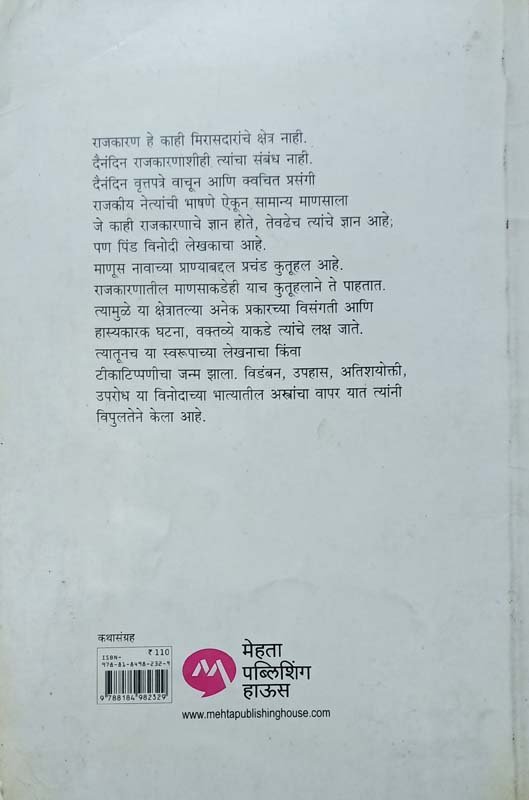 राजकारण हे काही मिरासदारांचे क्षेत्र नाही.
दैनंदिन राजकारणाशीही त्यांचा संबंध नाही.
दैनंदिन वृत्तपत्रे वाचून आणि क्वचित प्रसंगी
राजकीय नेत्यांची भाषणे ऐकून सामान्य माणसाला
जे काही राजकारणाचे ज्ञान होते, तेवढेच त्यांचे ज्ञान आहे;
पण पिंड विनोदी लेखकाचा आहे.
माणूस नावाच्या प्राण्याबद्दल प्रचंड कुतूहल आहे.
राजकारणातील माणसाकडेही याच कुतूहलाने ते पाहतात.
त्यामुळे या क्षेत्रातल्या अनेक प्रकारच्या विसंगती आणि
हास्यकारक घटना, वक्तव्ये याकडे त्यांचे लक्ष जाते.
त्यातूनच या स्वरूपाच्या लेखनाचा किंवा
टीकाटिप्पणीचा जन्म झाला. विडंबन, उपहास, अतिशयोक्ती,
उपरोध या विनोदाच्या भात्यातील अस्त्रांचा वापर यात त्यांनी
विपुलतेने केला आहे.
कथासंग्रह
ISBN- ₹ 110
978-81-8498-232-9
9 788184 982329
मेहता
पब्लिशिंग
हाऊस
www.mehtapublishinghouse.com